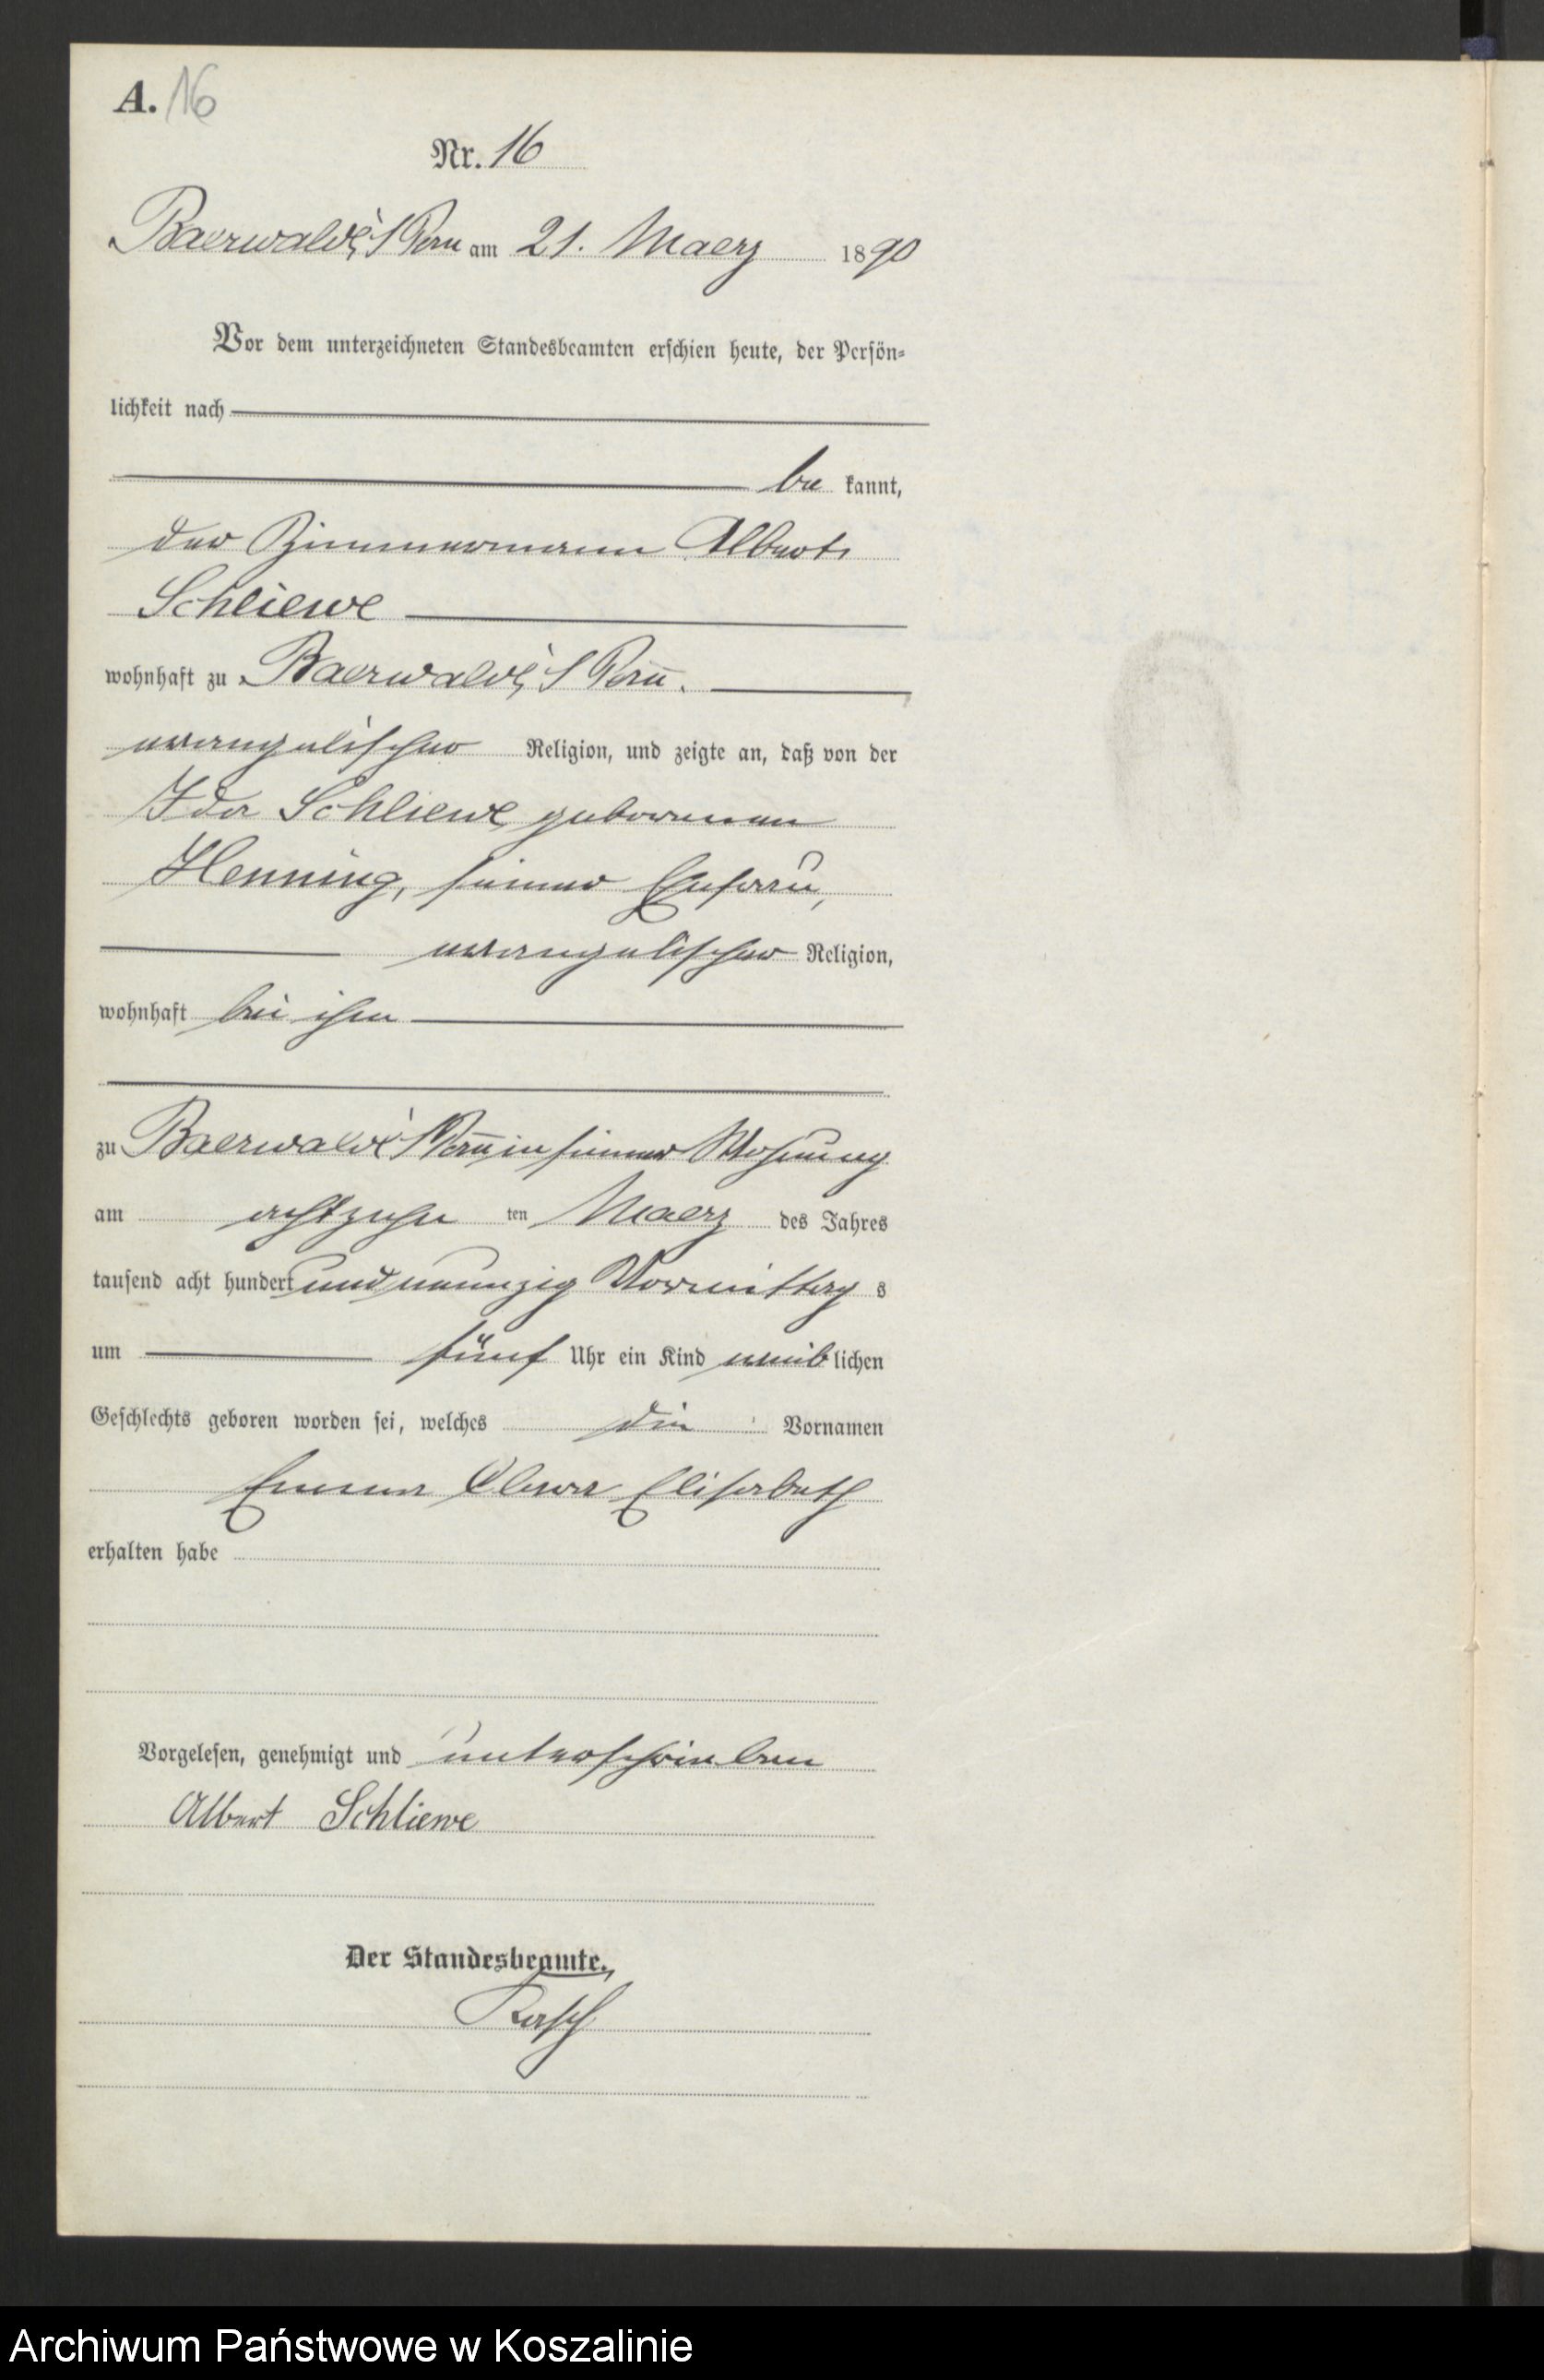 A. 16
Nr. 16
Baerwalde i/Pom am 21. Maerz 1890
Vor dem unterzeichneten Standesbeamten erschien heute, der Persön-
lichkeit nach
be kannt,
der Zimmermann Albert
Schliewe
wohnhaft zu Baerwalde i/Pom.
evangelischer Religion, und zeigte an, daß von der
Ida Schliewe geborenen
Henning, seiner Ehefrau,
evangelischer Religion,
wohnhaft bei ihm
zu Baerwalde i/Pom in seiner Wohnung
am achtzehn ten Maerz des Jahres
tausend acht hundert und neunzig Vormittag s
um fünf Uhr ein Kind weiblichen
Geschlechts geboren worden sei, welches die Vornamen
Emma Clara Elisabeth
erhalten habe
Vorgelesen, genehmigt und unterschrieben
Albert Schliewe
Der Standesbeamte.
Rasch
Archiwum Państwowe w Koszalinie